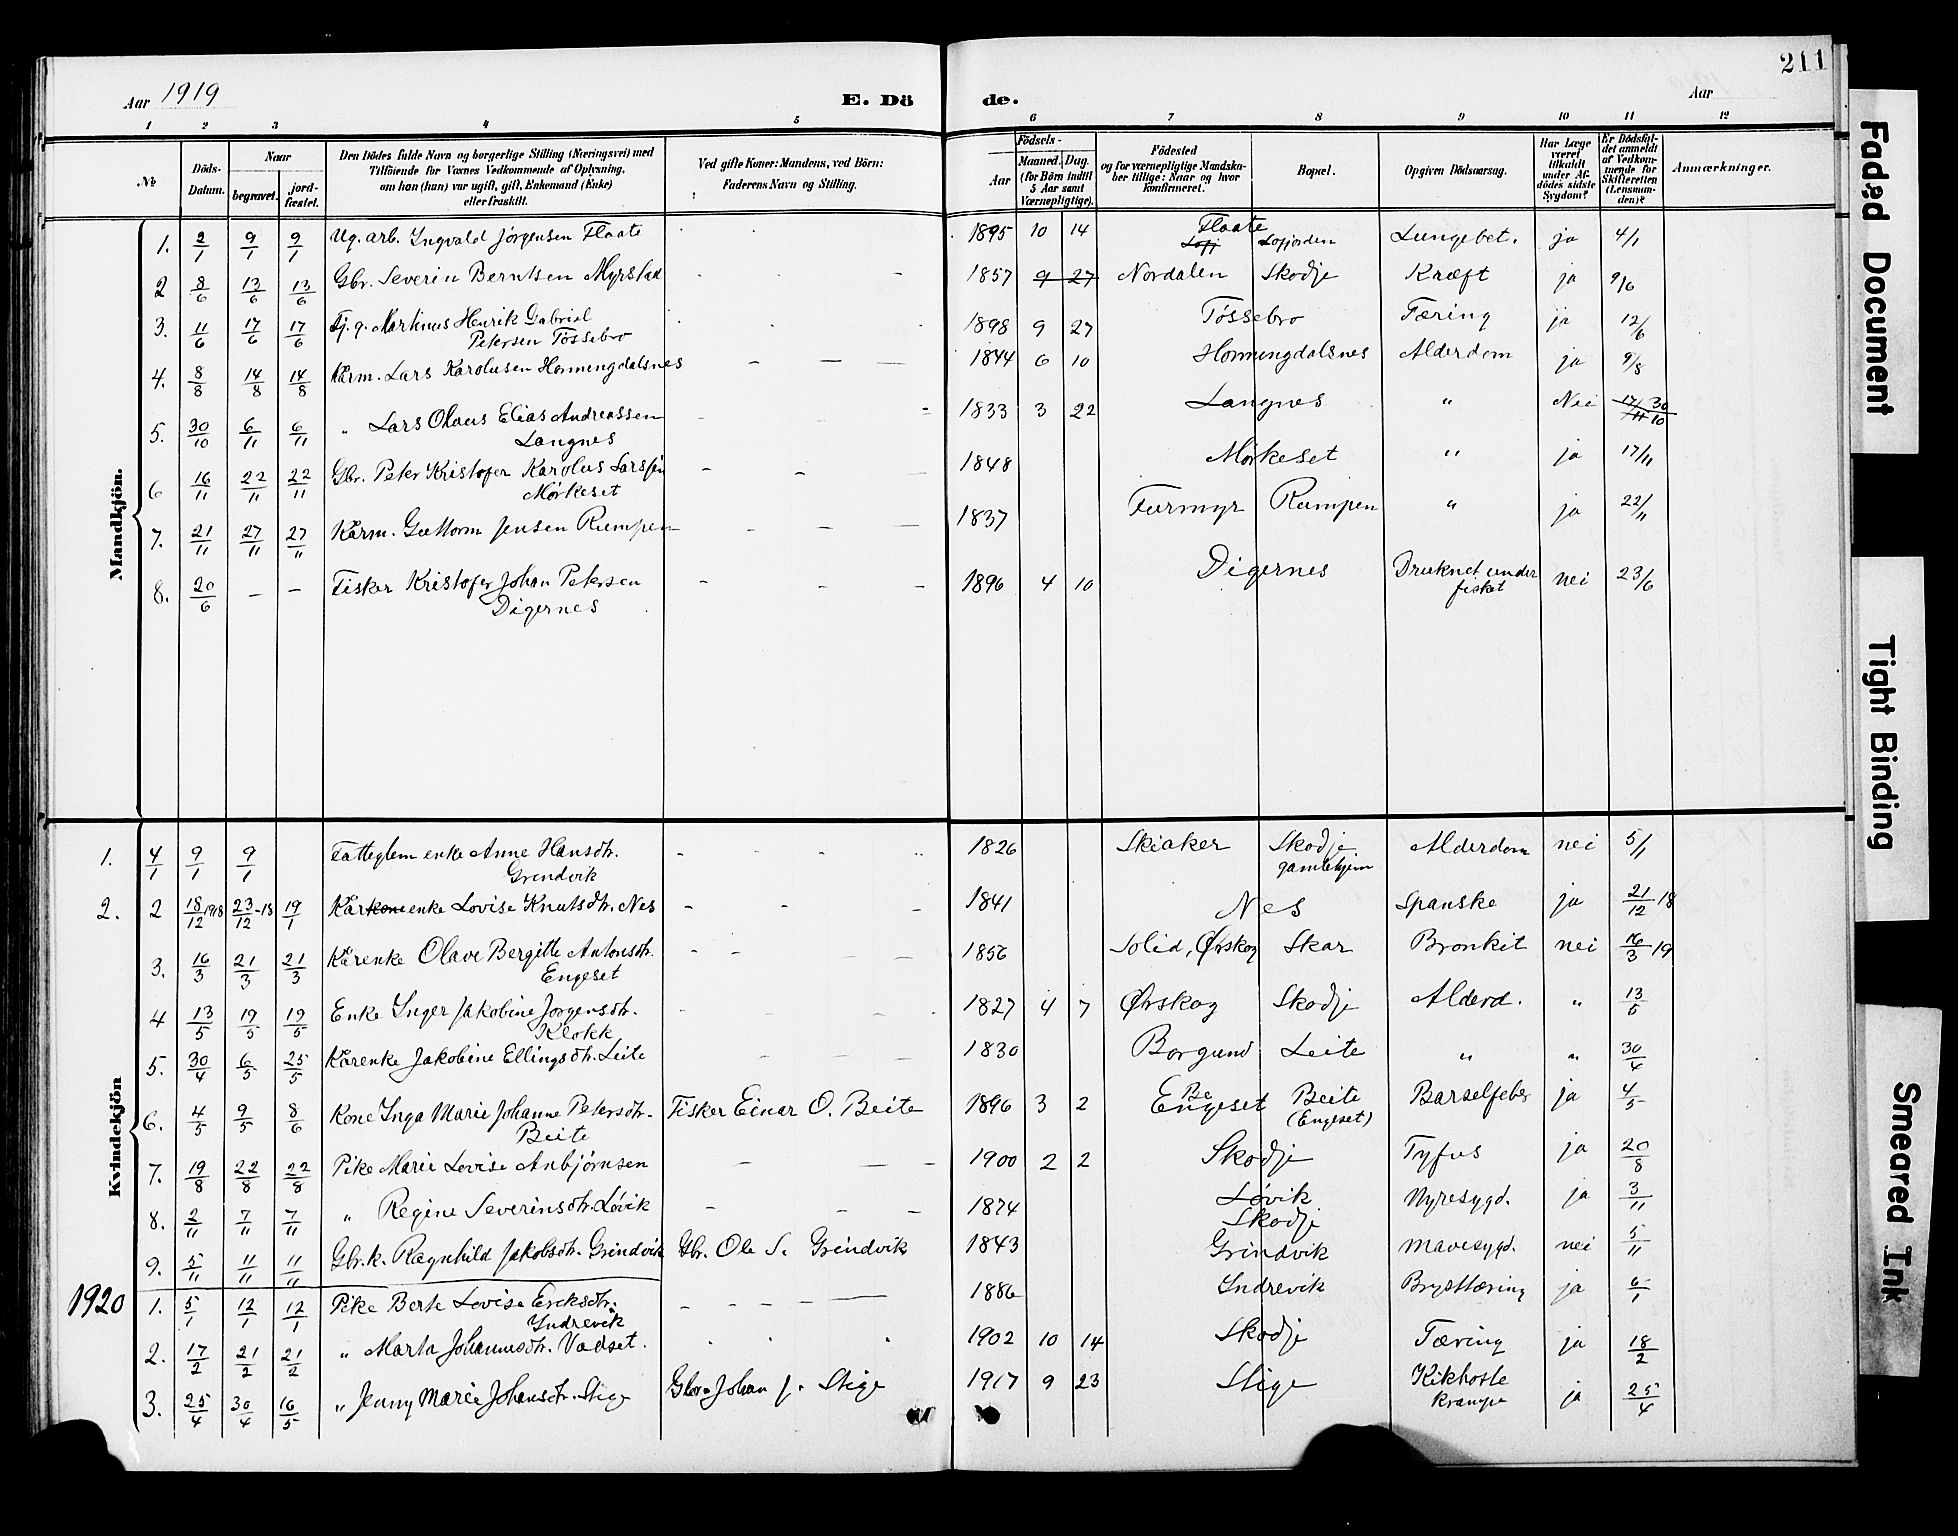 211
Aar 1919
E. Dö de.
Aar
1 2 3 4 5 6 7 8 9 10 11 12
No
Döds-Datum.
Naar
begravet.
jord-fæstet.
Den Dödes fulde Navn og borgerlige Stilling (Næringsvei) med
Tilföiende for Voxnes Vedkommende af Oplysning,
om han (hun) var ugift, gift, Enkemand (Enke)
eller fraskilt.
Ved gifte Koner: Mandens, ved Börn:
Faderens Navn og Stilling.
Födsels-
Aar
Maaned. Dag.
(for Börn indtil
5 Aar samt
Værnepligtige).
Födested
og for værnepligtige Mandska-
ber tillige: Naar og hvor
konfirmeret.
Bopæl.
Opgiven Dödsaarsag.
Har Læge
været
tilkaldt
under Af-
dödes sidste
Sygdom?
Er Dödsfal-
det anmeldt
af Vedkom-
mende for
Skifteretten
(Lensman-
den)?
Anmærkninger.
Mandkjön.
1. 2/1 9/1 9/1 Ug. arb. Ingvald Jørgensen Flaate 1895 10 14 Flaate Lofj Lofjorden Lungebet. ja 4/1
2 8/6 13/6 13/6 Gbr. Severin Berntsen Myrstad 1857 9 27 Nordalen Skodje Kræft ja 9/6
3. 11/6 17/6 17/6 Tj. g. Martinus Henrik Gabriel 1898 9 27 Tössebro Tæring ja 12/6
Petersen Tössebro
4. 8/8 14/8 14/8 Kårm. Lars Karolusen Honningdalsnes 1844 6 10 Honningdalsnes Alderdom ja 9/8
5. 30/10 6/11 6/11 " Lars Olaus Elias Andreassen 1833 3 22 Langnes " Nei 17/11 30/10
Langnes
6 16/11 22/11 22/11 Gbr. Peter Kristofer Karolus Larssen 1848 Mørkeset " ja 17/11
Mørkeset
7. 21/11 27/11 27/11 Kårm. Guttorm Jensen Rumpen 1837 Furmyr Rumpen " ja 22/11
8. 20/6 – – Fisker Kristofer Johan Petersen 1896 4 10 Digernes Druknet under nei 23/6
Digernes fisket
Kvindekjön
1. 4/1 9/1 9/1 Fatteglem enke Anne Hansdtr. 1826 Skiaker Skodje Alderdom nei 5/1
Grindvik gamlehjem
2. 2 18/12 1918 23/12-18 19/1 Kårkone enke Lovise Knutsdtr. Nes 1841 Nes Spanske ja 21/12 18
3. 16/3 21/3 21/3 Kårenke Olave Bergitte Antonsdtr. 1856 Solid, Ørskog Skar Bronkit nei 16/3 19
Engeset
4 13/5 19/5 19/5 Enke Inger Jakobine Jørgensdtr. 1827 4 7 Ørskog Skodje Alderd. " 13/5
Klokk
5. 30/4 6/5 25/5 Kårenke Jakobine Ellingsdtr. Leite 1830 Borgund Leite " " 30/4
6. 4/5 9/5 8/6 Kone Inga Marie Johanne Petersdtr. Fisker Einar O. Beite 1896 3 2 Be Engeset Beite Barselfeber ja 4/5
Beite (Engeset)
7. 19/8 22/8 22/8 Pike Marie Lovise Anbjørnsen 1900 2 2 Skodje Tyfus ja 20/8
8. 2/11 7/11 7/11 " Regine Severinsdtr. Løvik 1874 Løvik Nyresygd. ja 3/11
Skodje
9. 5/11 11/11 11/11 Gbr.k. Ragnhild Jakobsdtr. Grindvik Gbr. Ole S. Grindvik 1843 Grindvik Mavesygd. nei 5/11
1920 1. 5/1 12/1 12/1 Pike Berte Lovise Eriksdtr. 1886 Indrevik Brysttæring ja 6/1
Indrevik
2. 17/2 21/2 21/2 " Marta Johannesdtr. Vadset. 1902 10 14 Skodje Tæring ja 18/2
3. 25/4 30/4 16/5 " Jenny Marie Johansdtr. Stige Gbr. Johan J. Stige 1917 9 23 Stige Kikhoste ja 25/4
krampe
Faded Document
Tight Binding
Smeared Ink